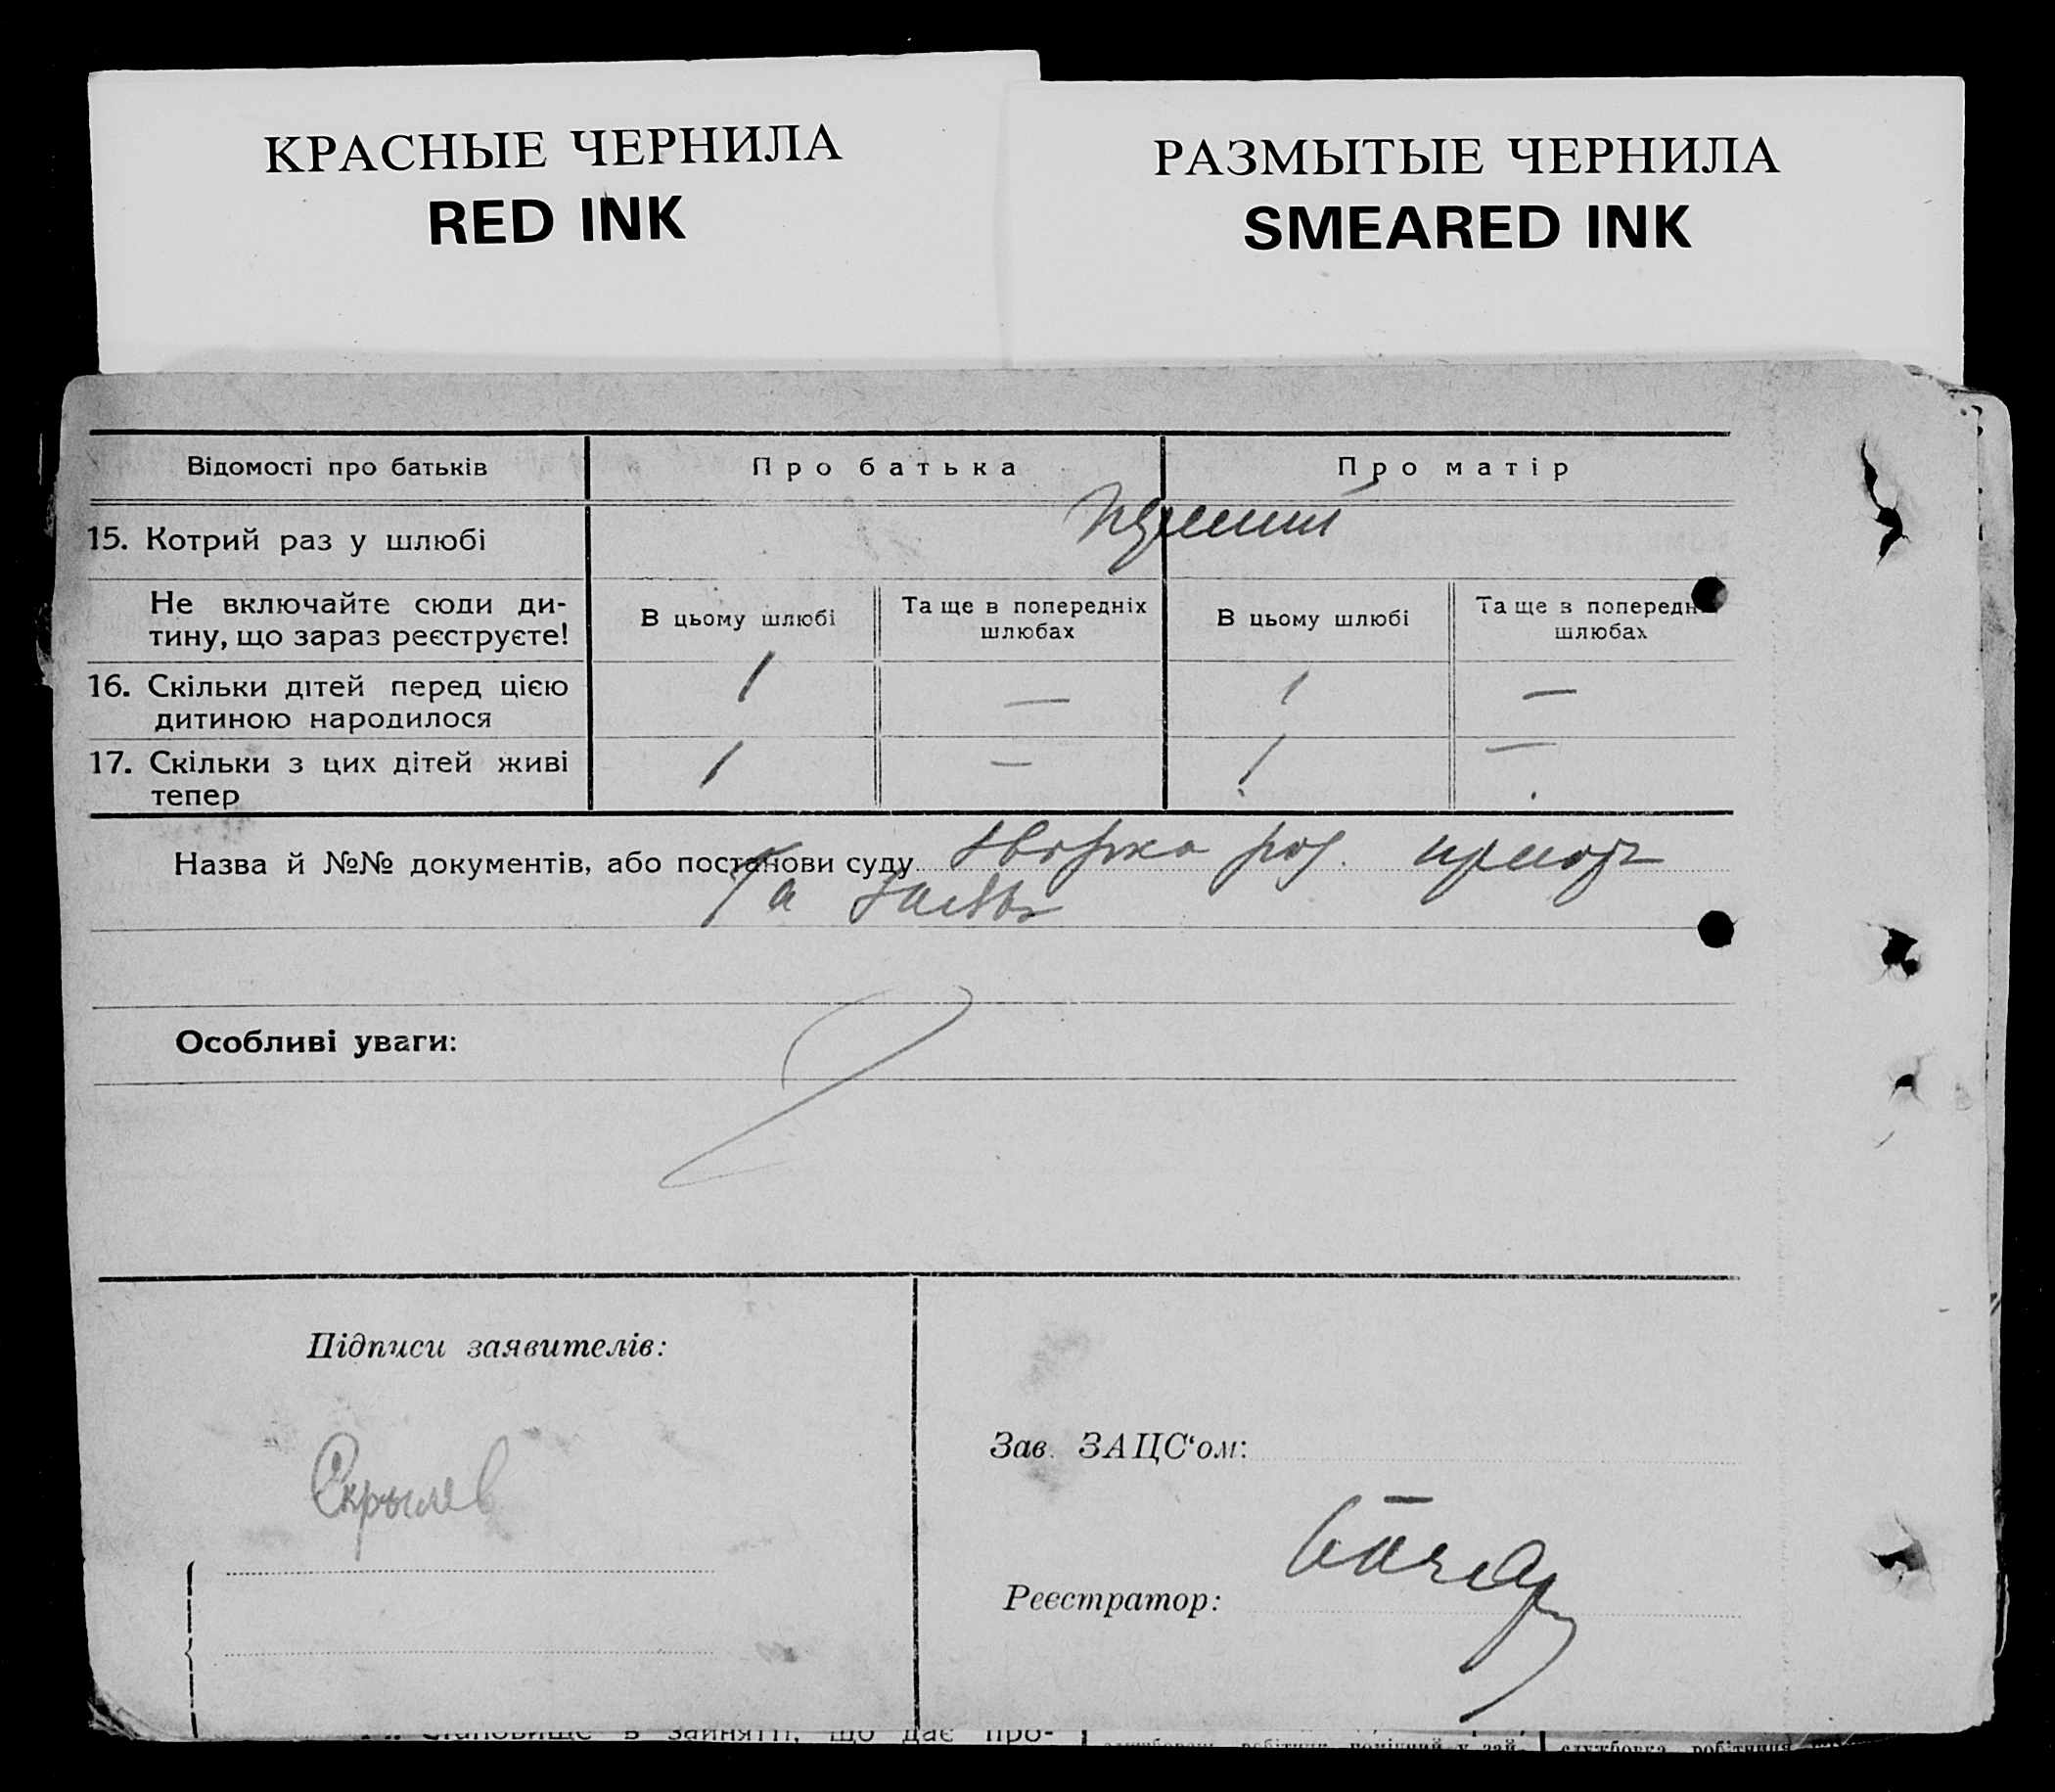 КРАСНЫЕ ЧЕРНИЛА
RED INK
РАЗМЫТЫЕ ЧЕРНИЛА
SMEARED INK
Відомості про батьків
Про батька
Про матір
15. Котрий раз у шлюбі
Не включайте сюди ди-
тину, що зараз реєструєте!
В цьому шлюбі
Та ще в попередніх
шлюбах
В цьому шлюбі
Та ще в попередн
шлюбах
16. Скільки дітей перед цією
дитиною народилося
1 — 1 —
17. Скільки з цих дітей живі
тепер
1 — 1 —
Назва й №№ документів, або постанови суду
та
Особливі уваги:
Підписи заявителів:
Скрылев
Зав. ЗАЦС‘ом:
Реєстратор:
Становище в занятті, що дає про-